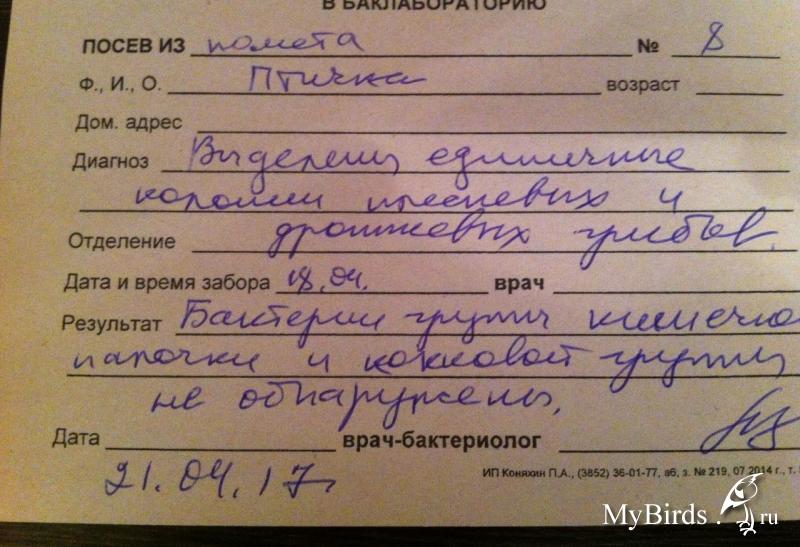 В БАКЛАБОРАТОРИЮ
ПОСЕВ ИЗ помета № 8
Ф., И., О. Птичка возраст
Дом. адрес
Диагноз Выделены единичные
колонии плесневых и
Отделение дрожжевых грибов.
Дата и время забора 18.04. врач
Результат Бактерии групп кишечно
палочки и кокковой группы
не обнаружены.
Дата врач-бактериолог
21.04.17г.
ИП Коняхин П.А., (3852) 36-01-77, зб, з. № 219, 07.2014 г., т.
MyBirds.ru